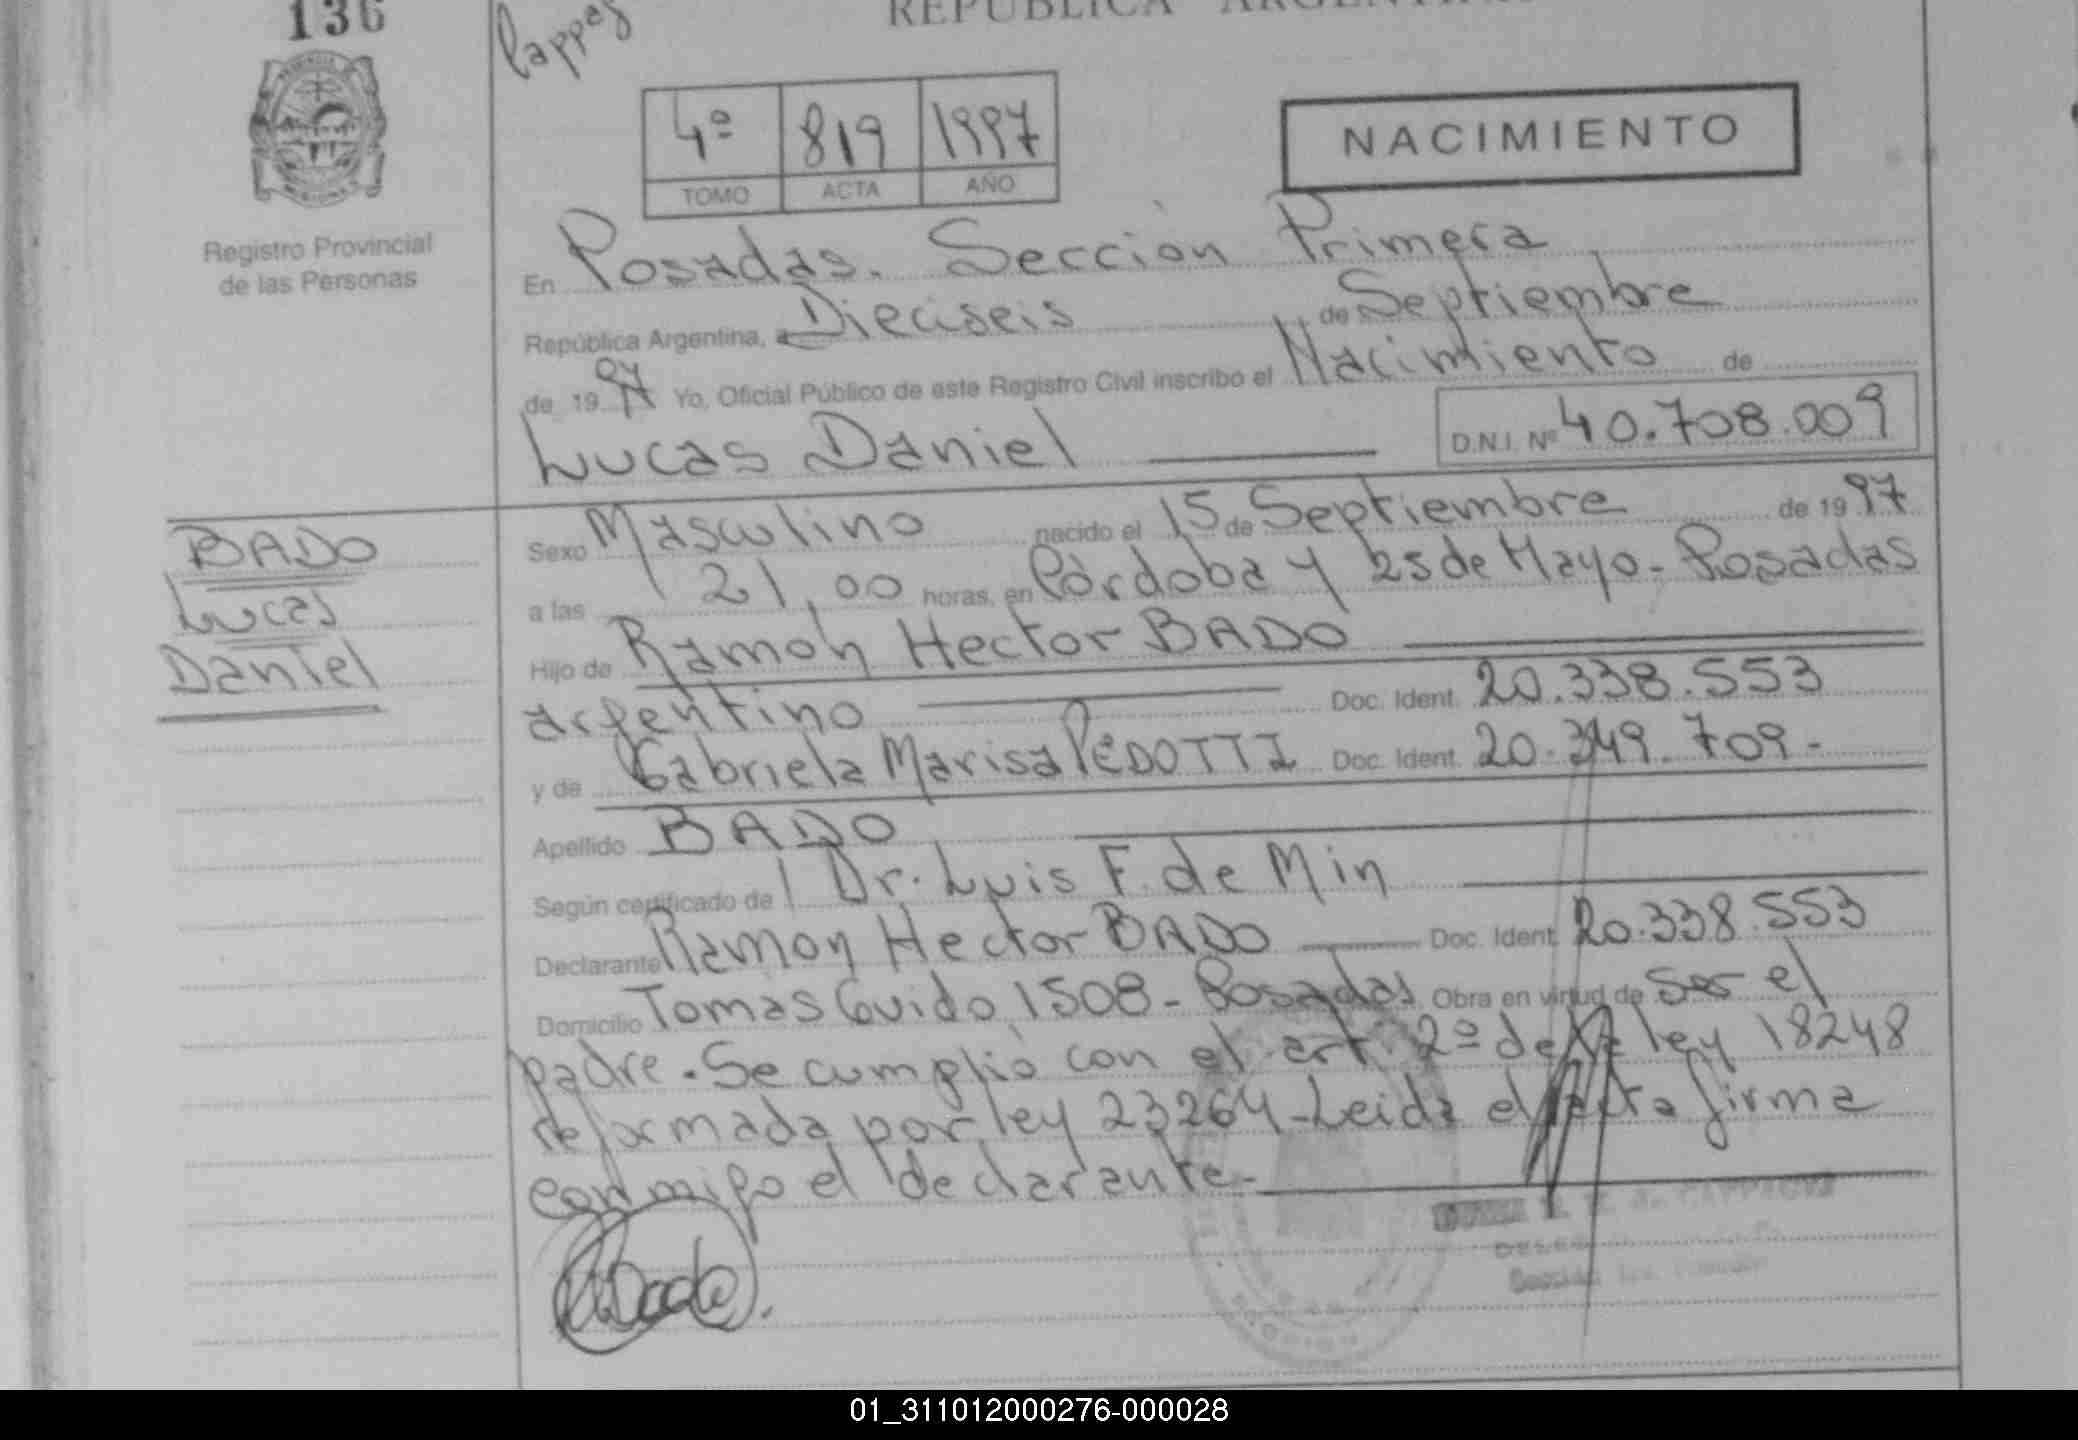 136
Cappes
REPUBLICA ARGENTINA
4º 819 1997
TOMO ACTA AÑO
NACIMIENTO
Registro Provincial
de las Personas
En Posadas. Sección Primera
República Argentina, a Dieciseis de Septiembre
de 19 97 Yo, Oficial Público de este Registro Civil inscribo el Nacimiento de
Lucas Daniel D.N.I. Nº 40.708.009
BADO
Lucas
Daniel
Sexo Masculino nacido el 15 de Septiembre de 19 97
a las 21,00 horas, en Córdoba y 25 de Mayo - Posadas
Hijo de Ramón Hector BADO
argentino Doc. Ident. 20.338.553
y de Gabriela Marisa PEDOTTI Doc. Ident. 20.349.709-
Apellido BADO
Según certificado de Dr. Luis F. de Min
Declarante Ramon Hector BADO Doc. Ident. 20.338.553
Domicilio Tomas Guido 1508 - Posadas Obra en virtud de ser el
padre. Se cumplió con el art. 2º de la ley 18248
reformada por ley 23264 - Leida el acta firma
conmigo el declarante.-
01_311012000276-000028